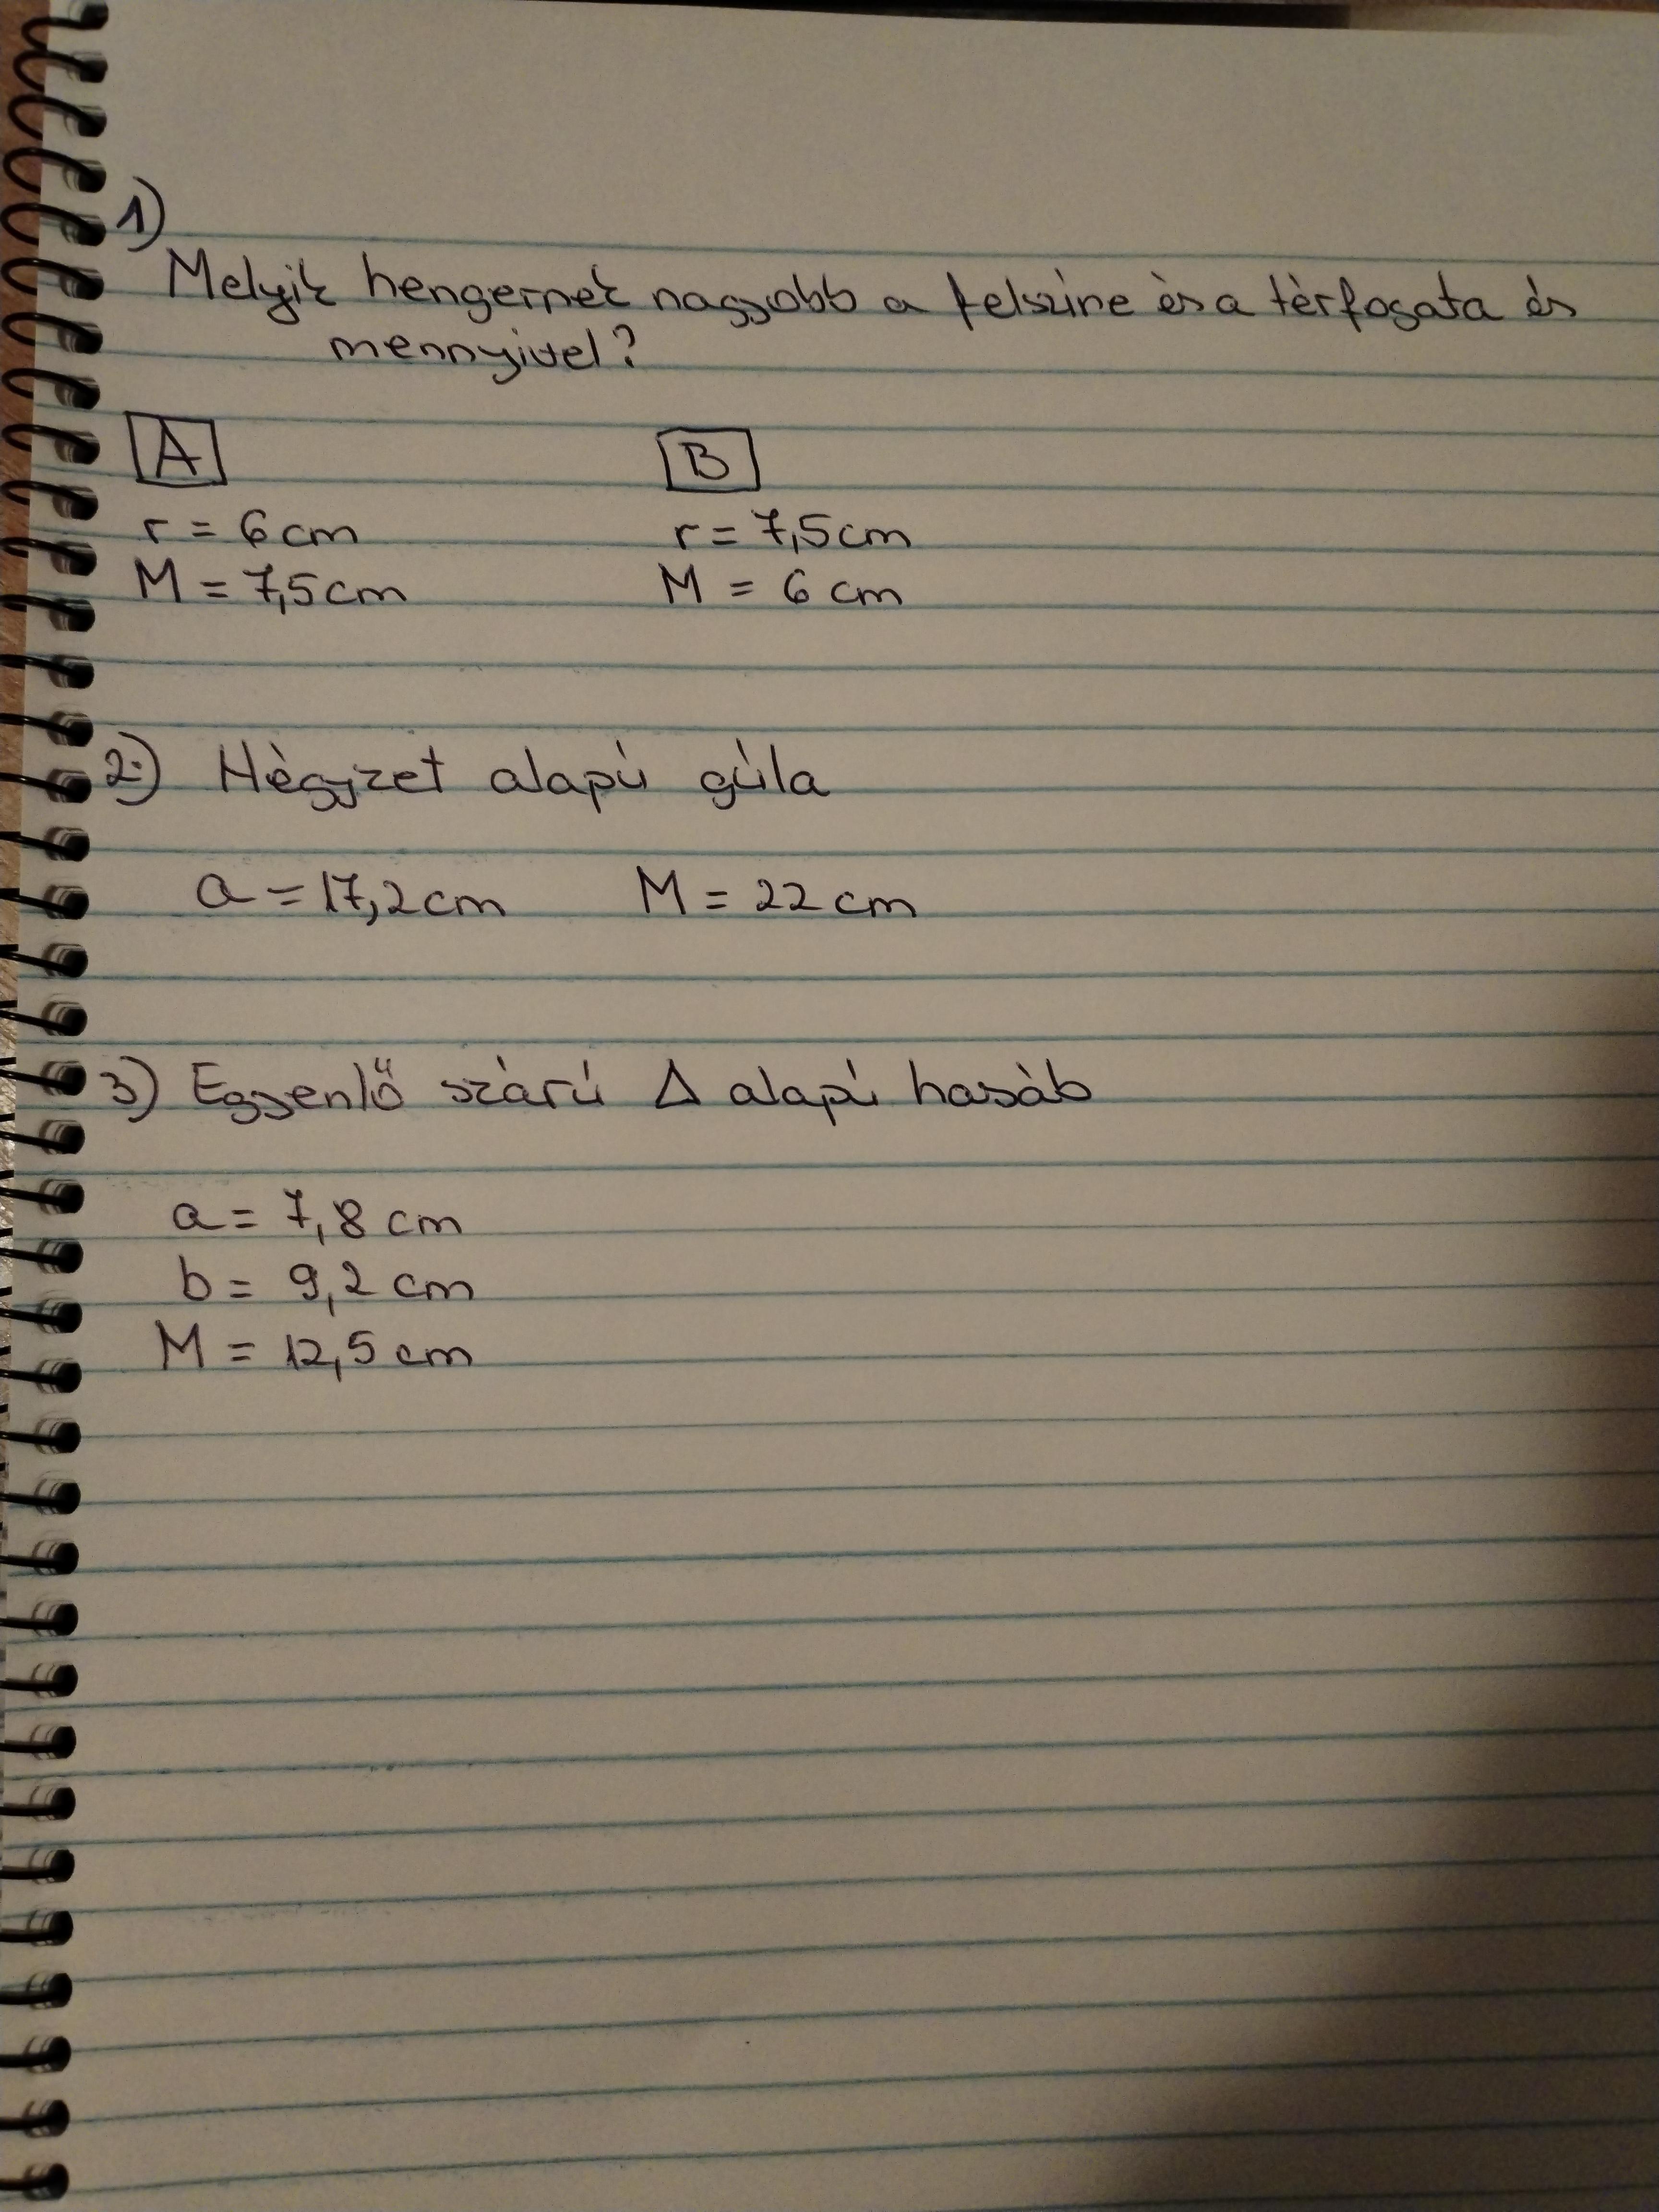 1)
Melyik hengernek nagyobb a felszíne és a térfogata és
mennyivel?
A B
r = 6 cm r = 7,5 cm
M = 7,5 cm M = 6 cm
2.) Négyzet alapú gúla
a = 17,2 cm M = 22 cm
3) Egyenlő szárú Δ alapú hasáb
a = 7,8 cm
b = 9,2 cm
M = 12,5 cm